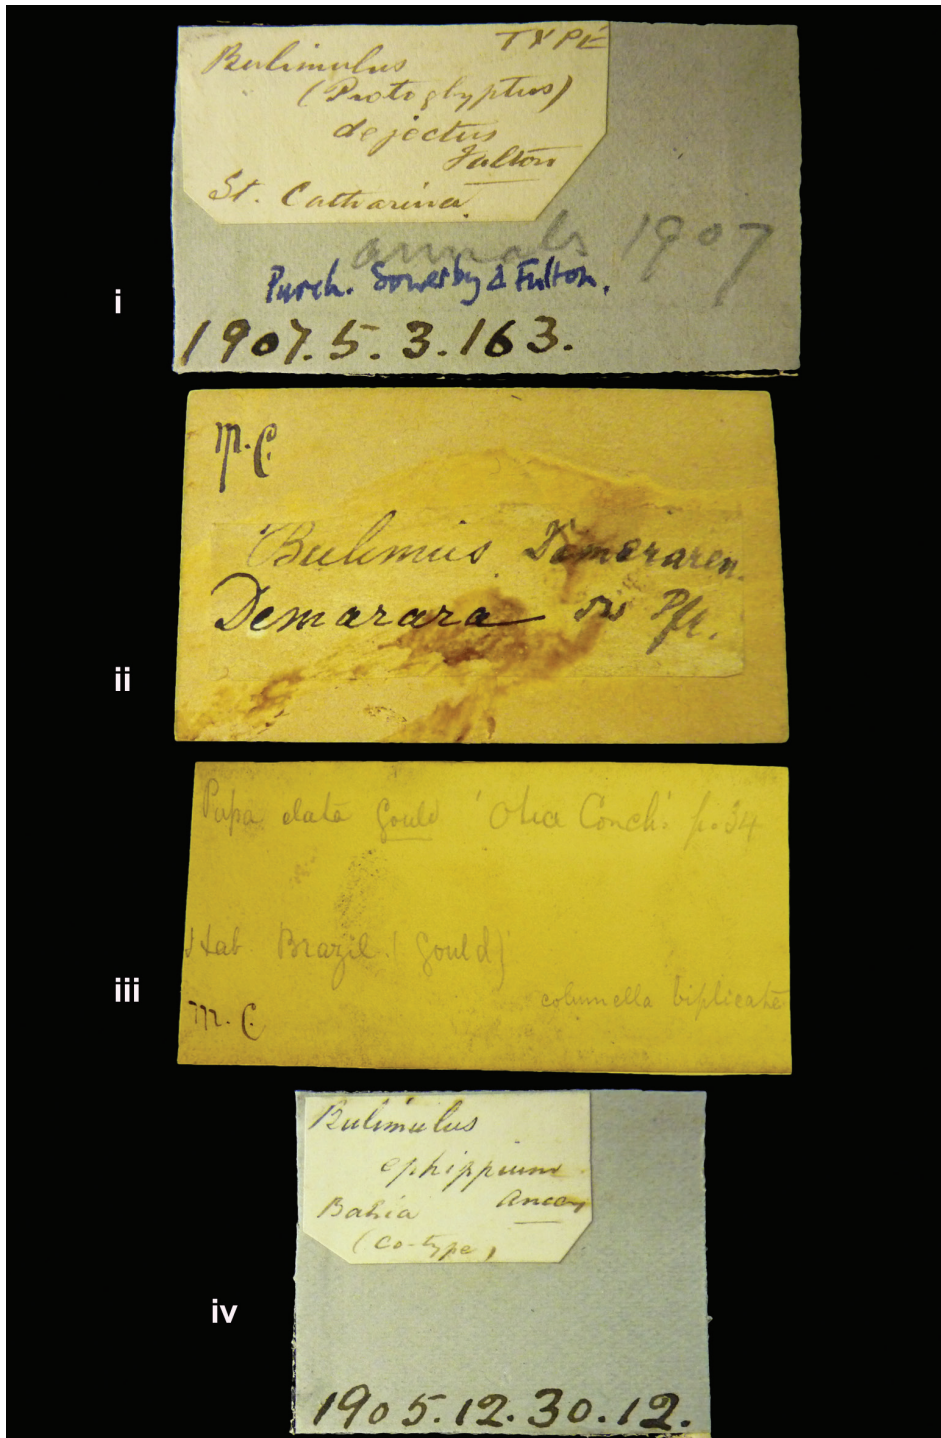 TYPE
Bulimulus
(Protoglyptus)
dejectus
Fulton
St. Catharina.
annals 1907
Purch. Sowerby & Fulton.
i
1907.5.3.163.
m.C.
Bulimus Demeraren.
Demarara sis Pfr.
ii
Pupa elata Gould 'Otia Conch.' p.34
Hab Brazil. (Gould)
iii
columella biplicate
m.C.
Bulimulus
ephippium
Bahia Ancey
(co-type)
iv
1905.12.30.12.